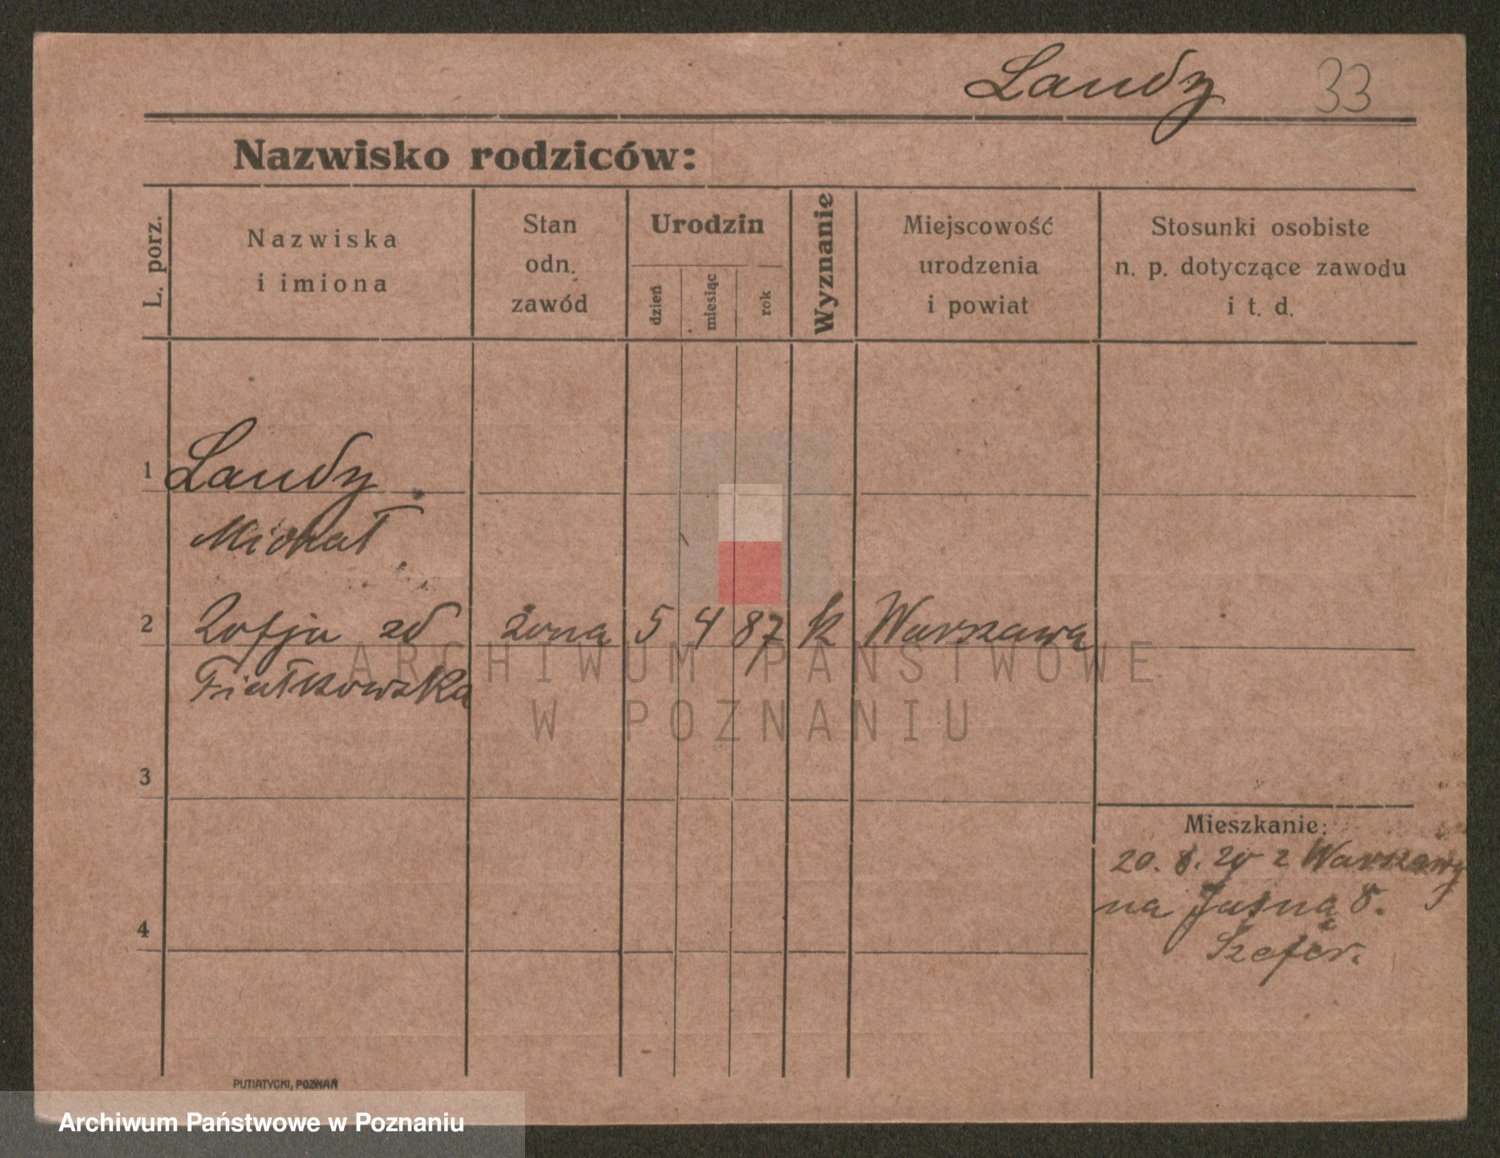 Landy 33
Nazwisko rodziców:
L. porz.
Nazwiska
i imiona
Stan
odn.
zawód
Urodzin
dzień
miesiąc
rok
Wyznanie
Miejscowość
urodzenia
i powiat
Stosunki osobiste
n. p. dotyczące zawodu
i t. d.
1 Landy
Michał
2 Zofja zd żona 5 4 87 k Warszawa
Fiałkowska
ARCHIWUM PAŃSTWOWE
W POZNANIU
3
Mieszkanie:
20. 8. 20 z Warszawy
na Jasną 8.
4
Szefer.
PUTIATYCKI, POZNAŃ
Archiwum Państwowe w Poznaniu